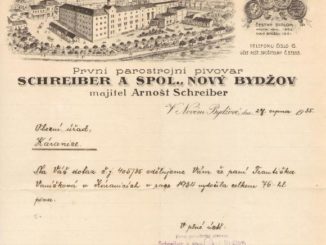 ČESTNÝ DIPLOM
TELEFONU ČÍSLO 6.
První parostrojní pivovar
SCHREIBER A SPOL., NOVÝ BYDŽOV
majitel Arnošt Schreiber
V Novém Bydžově, dne 27. srpna 1935.
Obecní úřad,
Káranice.
Na Váš dotaz č.j. 405/35 sdělujeme Vám že paní Františka
Vaníčková v Káranicích v roce 1934 vytočila celkem 76 hl
piva.
V plné úctě